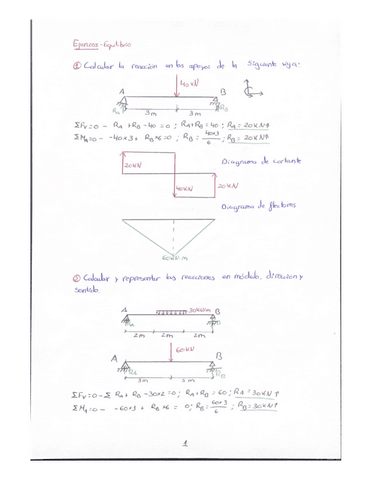 Ejercicios - Equilibrio
① Calcular la reacción en los apoyos de la siguiente viga:
40KN
A B
RA RB
3m 3m
ΣFv=0 - RA + RB - 40 = 0 ; RA + RB = 40 ; RA = 20KN↑
ΣMA=0 - -40x3 + RB·6 = 0 ; RB = 40x3/6 ; RB = 20KN↑
Diagrama de cortante
20KN
40KN 20KN
Diagrama de flectores
60KN·m
② Calcular y representar las reacciones en módulo, dirección y
sentido.
30KN/m
A B
2m 2m 2m
60KN
A B
RA RB
3m 3m
ΣFv=0 - RA + RB - 30x2 = 0 ; RA + RB = 60 ; RA = 30KN↑
ΣMA=0 - -60x3 + RB·6 = 0 ; RB = 60x3/6 ; RB = 30KN↑
1